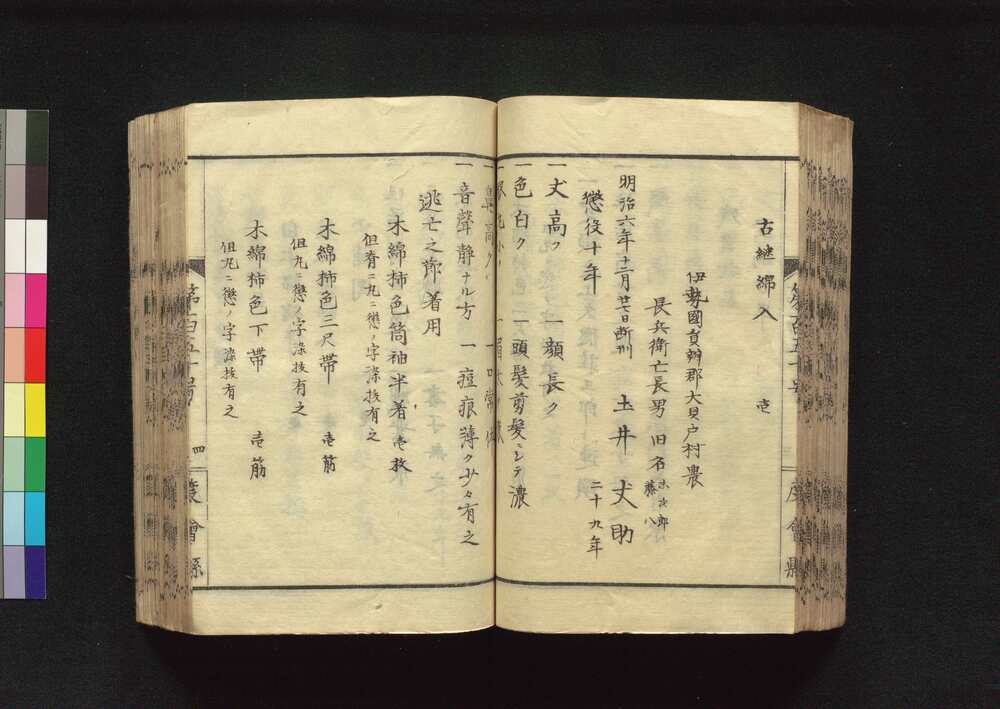 古継綿入 壱
伊勢國員辨郡大貝戸村農
長兵衛亡長男 旧名 末次郎 藤八
明治六年十二月廿七日断刑 土井丈助
懲役十年 二十九年
一丈高ク 一顔長ク
一色白ク 一頭髪剪髪ニシテ濃
一鼻高ク 一口常体
一音聲静ナル方 一痘痕薄ク少々有之
逃亡之節着用
木綿柿色筒袖半着 壱枚
但脊ニ丸ニ懲ノ字染抜有之
木綿柿色三尺帯 壱筋
但丸ニ懲ノ字染抜有之
木綿柿色下帯 壱筋
但丸ニ懲ノ字染抜有之
四
度會縣